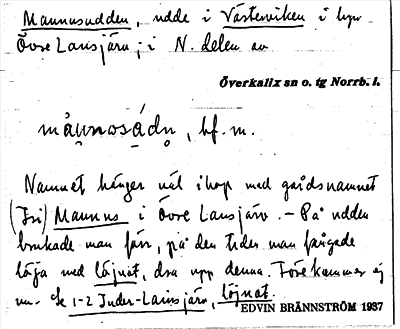 Mannusudden, udde i Västerviken i byn
Övre Lansjärv; i N. delen av
Överkalix sn o. tg Norrb. l.
mån̥nosádn̥, bf. m.
Namnet hänger väl ihop med gårdsnamnet
(Fri) Mannus i Övre Lansjärv. – På udden
brukade man förr, på den tiden man fångade
löja med löjnot, dra upp denna. Förekommer ej
nu. Se 1-2 Inder-Lansjärv, löjnot.
EDVIN BRÄNNSTRÖM 1937